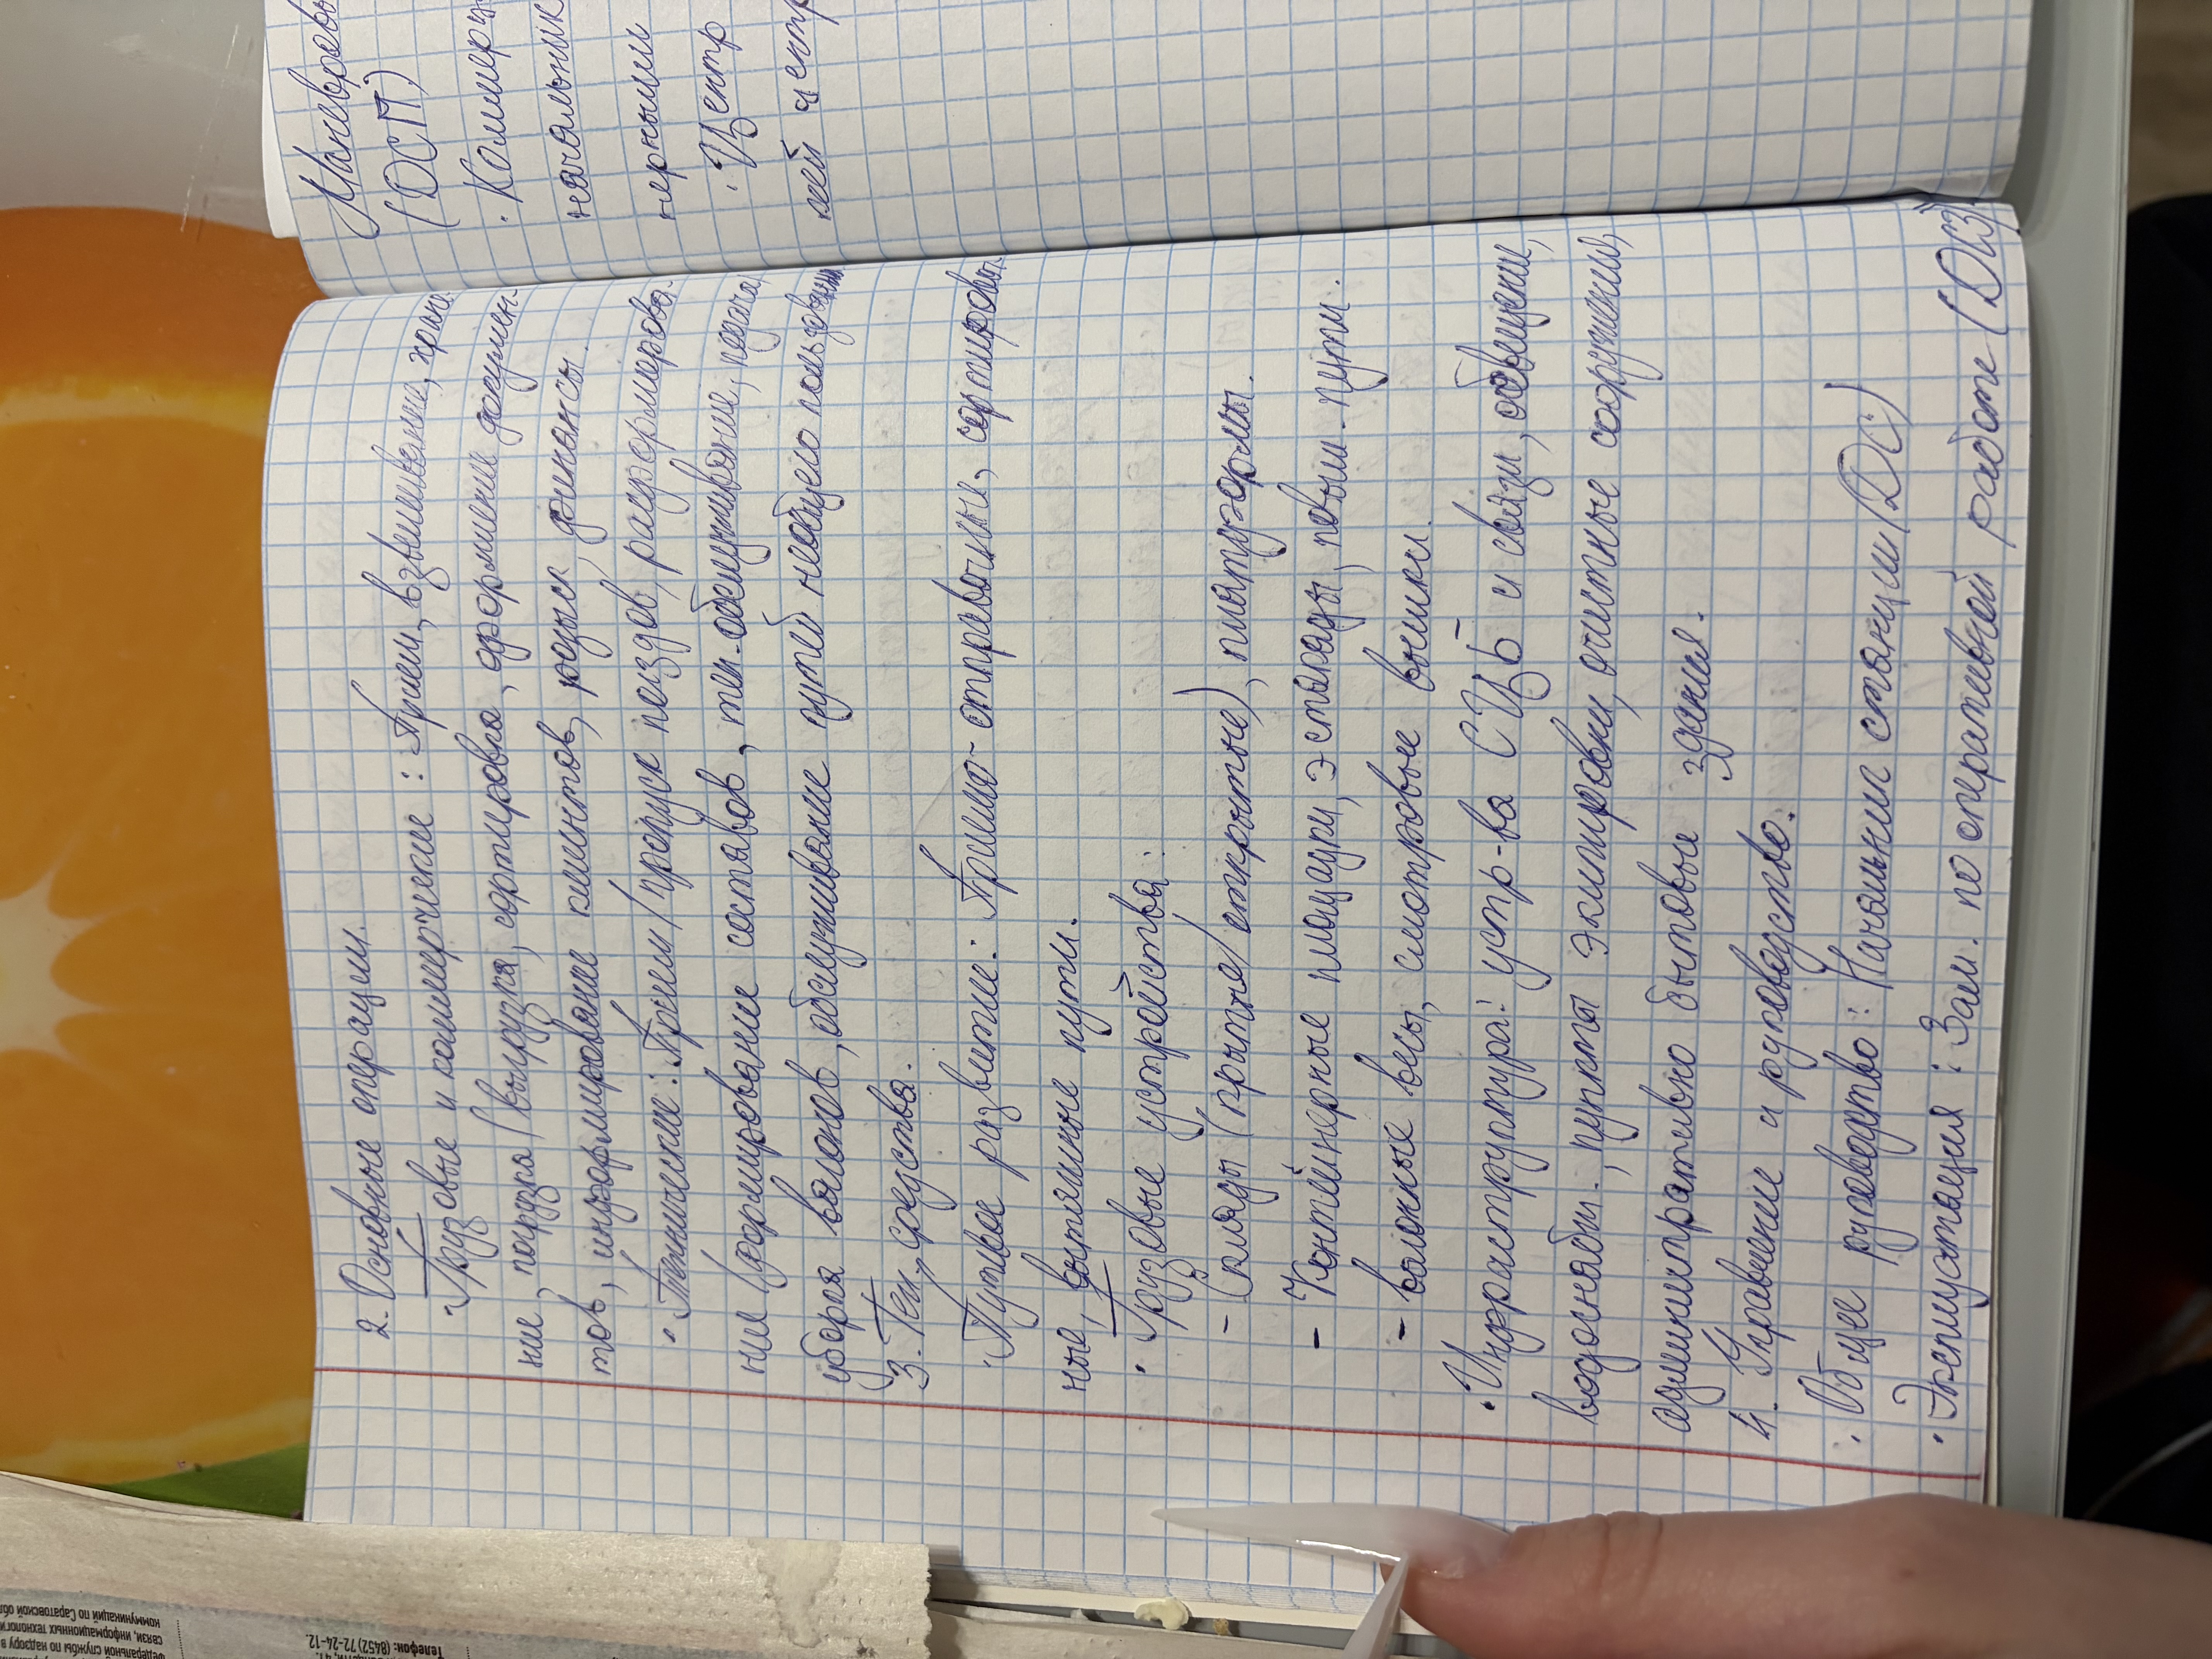 2. Основные операции.
· Грузовые и коммерческие: Прием, взвешивение, хране-
ние, погрузка/выгрузка, сортировка, оформление докумен-
тов, информирование клиентов, розыск, финансы.
· Технические: Прием/пропуск поездов, расформирова-
ние/формирование составов, тех. обслуживание, подача,
уборка вагонов, обслуживание путей необщего пользования
3. Тех. средства.
· Путевое развитие: Приемо-отправочные, сортировоч-
ные, вытяжные пути.
· Грузовые устройства:
- Склады (крытые/открытые), платформы.
- Контейнерные площадки, эстакады, повыш. пути.
- вагонные весы, смотровые вышки.
· Инфраструктура: устр-ва СЦБ и связи, освещении,
водоснабж., пункты экипировки, очистные сооружения,
административно бытовые здания.
4. Управление и руководство.
· Общее руководство: Начальник станции (ДС)
· Эксплуатация: Зам. по оперативной работе (ДСЗ)
Маневров
(ДСП)
· Коммерч
начальник
нерными
· Центр
лей центр
коммуникаций по Саратовской обл
связи, информационных технологи
Федеральной службы по надзору в
Телефон: (8452) 72-24-12.